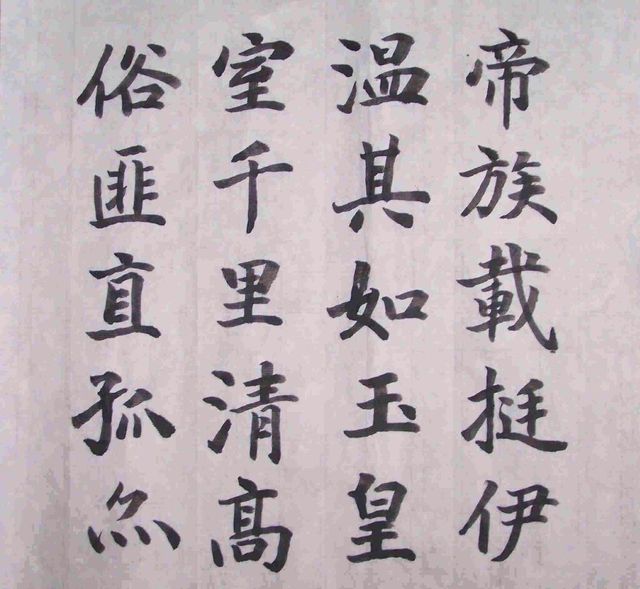 帝族載挺伊
温其如玉皇
室千里清髙
俗匪直孤